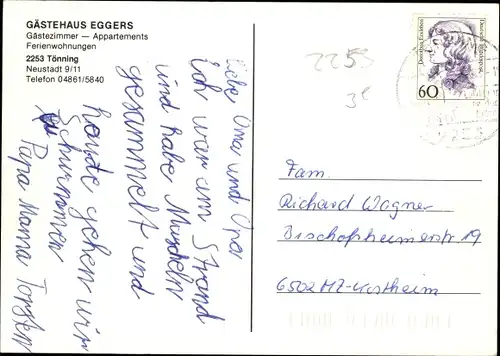 GÄSTEHAUS EGGERS
Gästezimmer — Appartements
Ferienwohnungen
2253 Tönning
Neustadt 9/11
Telefon 04861/5840
Liebe Oma und Opa
ich war am Strand
und habe Muscheln
gesammelt und
heute gehen wir
schwimmen
Papa Mama Torsten
2253
60
Fam.
Richard Wagner
Bischofsheimerstr 19
6502 MZ-Kostheim